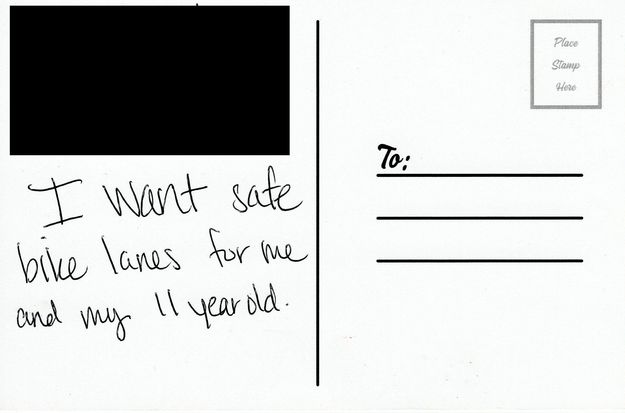 I want safe
bike lanes for me
and my 11 year old.
Place
Stamp
Here
To: